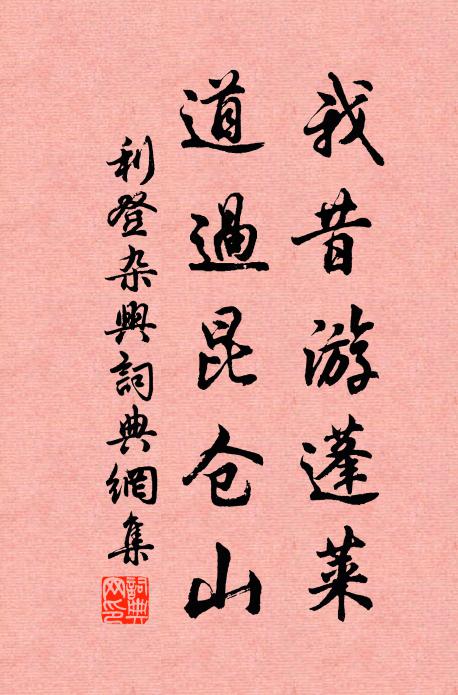 我昔游蓬莱
道過昆仑山
利登杂興詞典網集
詞典網印